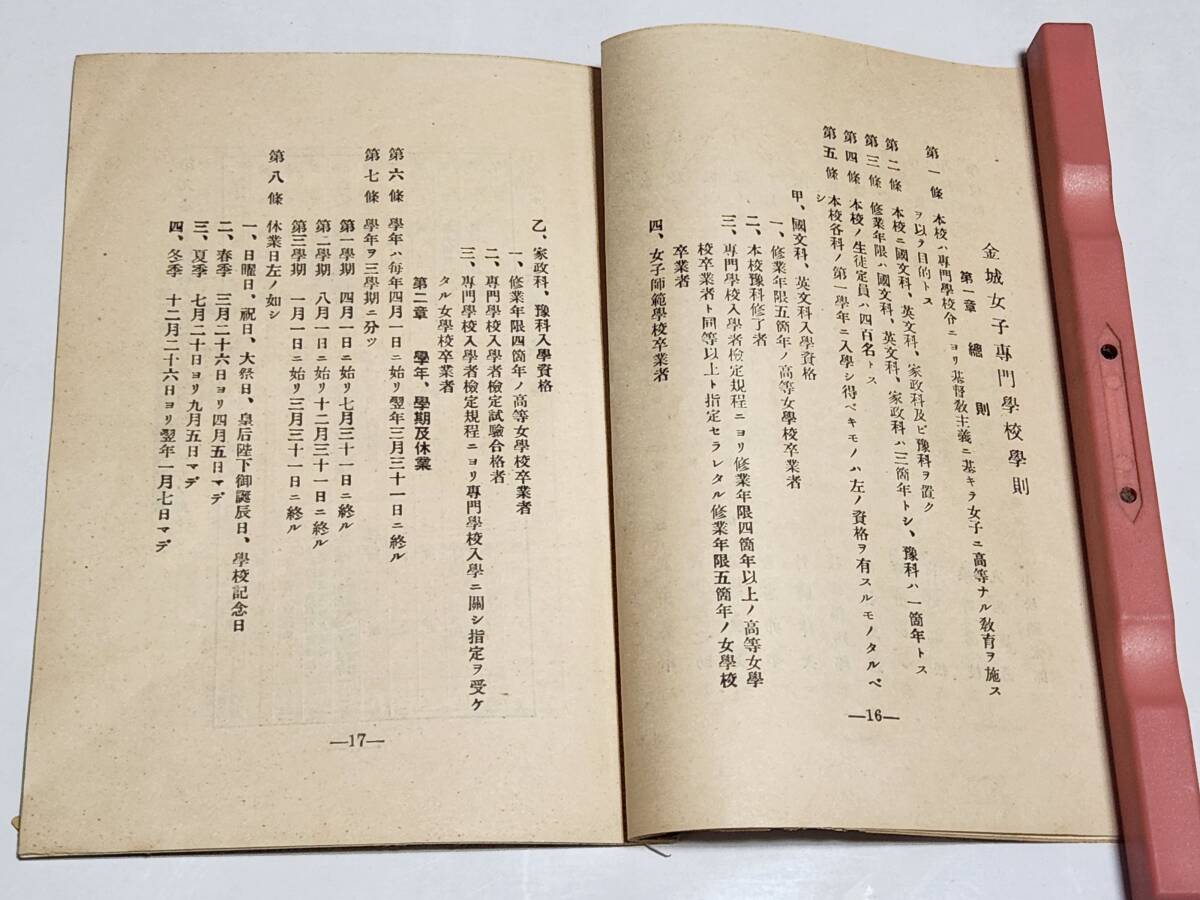 金城女子專門學校學則
第一章 總則
第一條 本校ハ專門學校令ニヨリ基督敎主義ニ基キテ女子ニ高等ナル敎育ヲ施ス
ヲ以テ目的トス
第二條 本校ニ國文科、英文科、家政科及ビ豫科ヲ置ク
第三條 修業年限ハ國文科、英文科、家政科ハ三箇年トシ、豫科ハ一箇年トス
第四條 本校ノ生徒定員ハ四百名トス
第五條 本校各科ノ第一學年ニ入學シ得ベキモノハ左ノ資格ヲ有スルモノタルベ
シ
甲、國文科、英文科入學資格
一、修業年限五箇年ノ高等女學校卒業者
二、本校豫科修了者
三、專門學校入學者檢定規程ニヨリ修業年限四箇年以上ノ高等女學
校卒業者ト同等以上ト指定セラレタル修業年限五箇年ノ女學校
卒業者
四、女子師範學校卒業者
—16—
乙、家政科、豫科入學資格
一、修業年限四箇年ノ高等女學校卒業者
二、專門學校入學者檢定試驗合格者
三、專門學校入學者檢定規程ニヨリ專門學校入學ニ關シ指定ヲ受ケ
タル女學校卒業者
第二章 學年、學期及休業
第六條 學年ハ每年四月一日ニ始リ翌年三月三十一日ニ終ル
第七條 學年ヲ三學期ニ分ツ
第一學期 四月一日ニ始リ七月三十一日ニ終ル
第二學期 八月一日ニ始リ十二月三十一日ニ終ル
第三學期 一月一日ニ始リ三月三十一日ニ終ル
第八條 休業日左ノ如シ
一、日曜日、祝日、大祭日、皇后陛下御誕辰日、學校記念日
二、春季 三月二十六日ヨリ四月五日マデ
三、夏季 七月二十日ヨリ九月五日マデ
四、冬季 十二月二十六日ヨリ翌年一月七日マデ
—17—